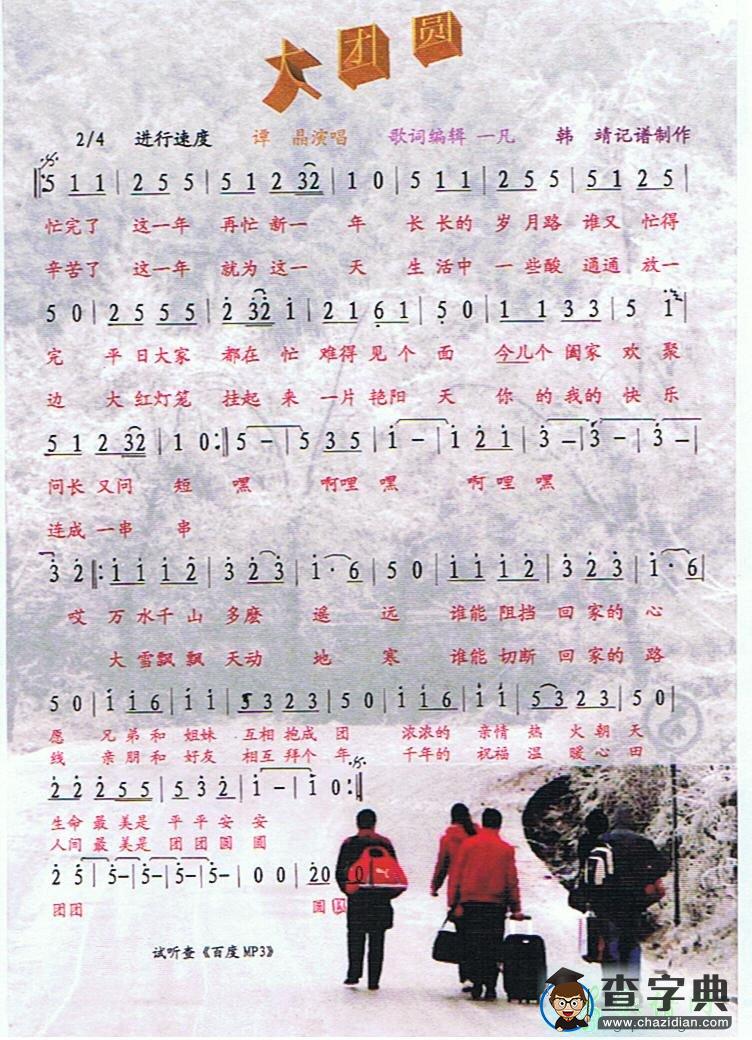 大团圆
2/4 进行速度 谭 晶演唱 歌词编辑 一凡 韩 靖记谱制作
5 1 1 | 2 5 5 | 5 1 2 32 | 1 0 | 5 1 1 | 2 5 5 | 5 1 2 5 |
忙完了 这一年 再忙 新一 年 长 长的 岁 月路 谁又 忙得
辛苦了 这一年 就为 这一 天 生 活中 一 些酸 通通 放一
5 0 | 2 5 5 5 | 2 32 1 | 2 1 6 1 | 5 0 | 1 1 3 3 | 5 1 |
完 平日大家 都在 忙 难得 见个 面 今儿个 阖家 欢 聚
边 大 红灯笼 挂起 来 一片 艳阳 天 你 的 我的 快 乐
5 1 2 32 | 1 0 :| 5 – | 5 3 5 | 1 – | 1 2 1 | 3 – | 3 – | 3 – |
问长 又问 短 嘿 啊哩 嘿 啊 哩 嘿
连成 一串 串
3 2 |: 1 1 1 2 | 3 2 3 | 1· 6 | 5 0 | 1 1 1 2 | 3 2 3 | 1· 6 |
哎 万 水千 山 多麽 遥 远 谁能 阻挡 回 家的 心
大 雪飘飘 天动 地 寒 谁能 切断 回 家的 路
5 0 | 1 1 6 | 1 1 | 5 3 2 3 | 5 0 | 1 1 6 | 1 1 | 5 3 2 3 | 5 0 |
愿 兄 弟和 姐妹 互相 抱成 团 浓浓的 亲情 热 火 朝 天
线 亲 朋和 好友 相互 拜个 年 千年的 祝福 温 暖 心 田
2 2 2 5 5 | 5 3 2 | 1 – | 1 0 :|
生命 最 美是 平 平 安 安
人间 最 美是 团 团 圆 圆
2 5 | 5 – | 5 – | 5 – | 5 – | 0 0 | 2 0
团团 圆
试听查《百度 MP3》
查字典
www.chazidian.com